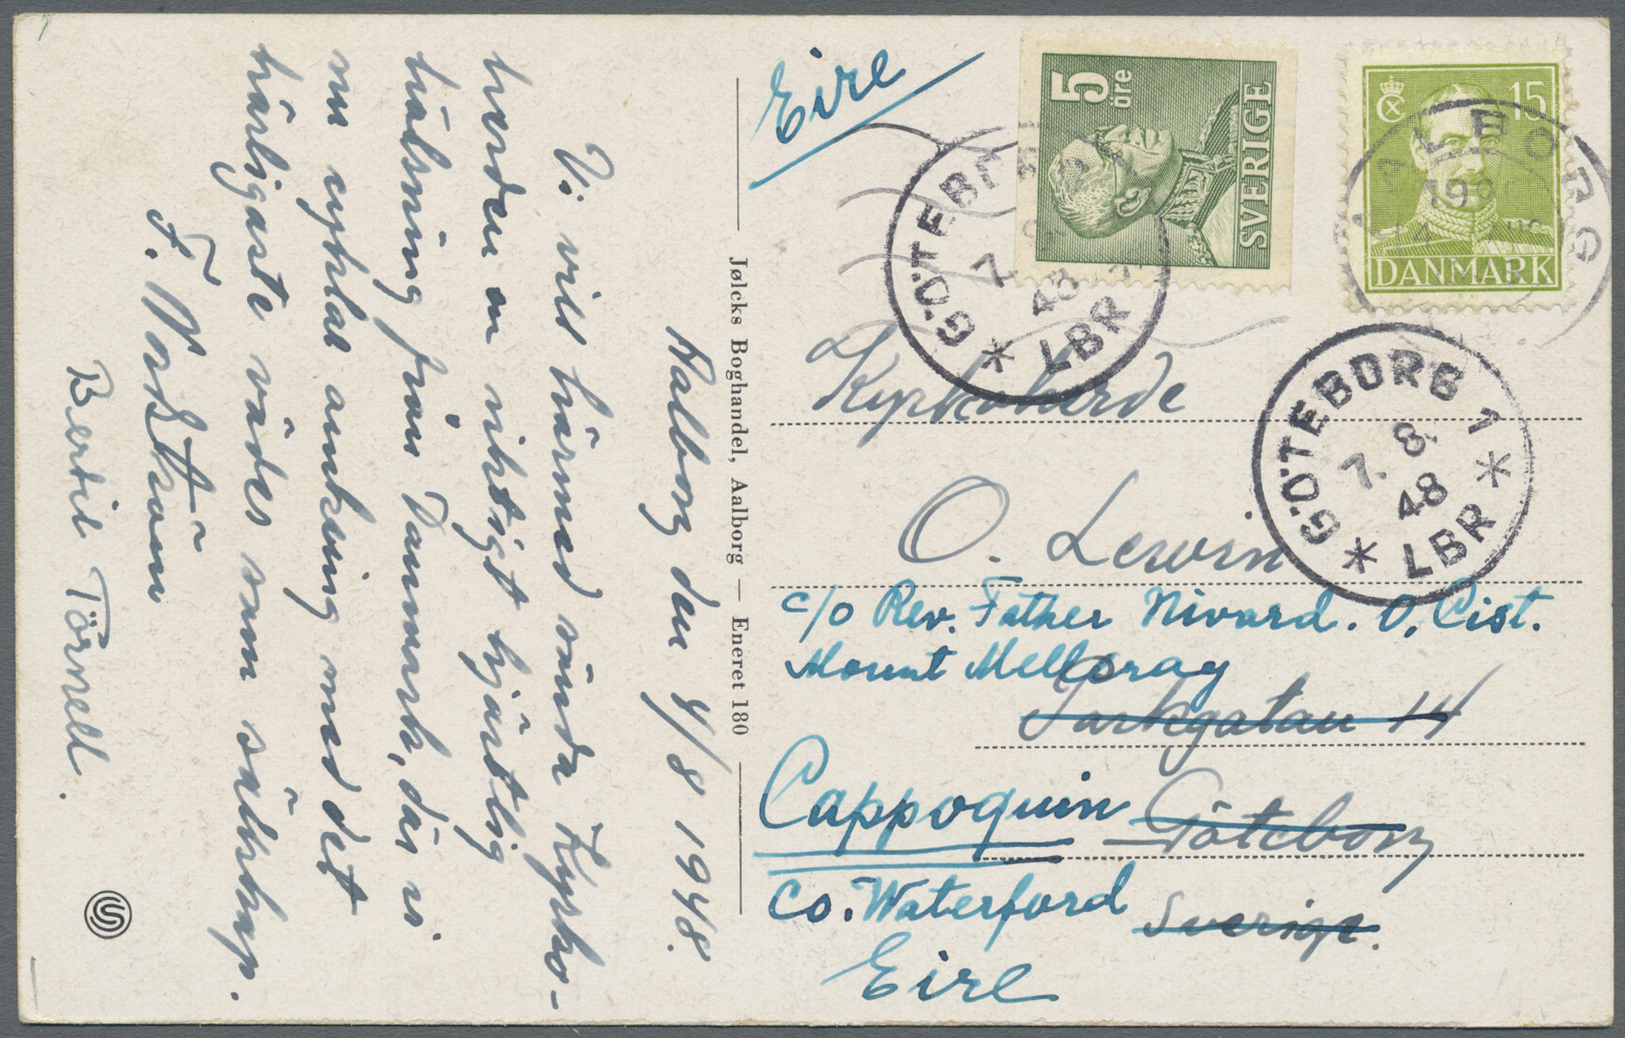 Aalborg den 4/8 1948.
Vi vill härmed sända Kyrko-
herden en riktigt hjärtlig
hälsning från Danmark, där vi
nu cyklar omkring med det
härligaste väder som sällskap.
F.
Bertil Törnell.
Jølcks Boghandel, Aalborg — Eneret 180
Eire
5
öre
SVERIGE
15
DANMARK
AALBORG
GÖTEBORG 1
7. 8. 48
LBR
GÖTEBORG 1
7. 8. 48
LBR
Kyrkoherde
O. Lewin
c/o Rev. Father Nivard. O. Cist.
Mount Melloray
Parkgatan 14
Cappoquin Göteborg
Co. Waterford Sverige.
Eire